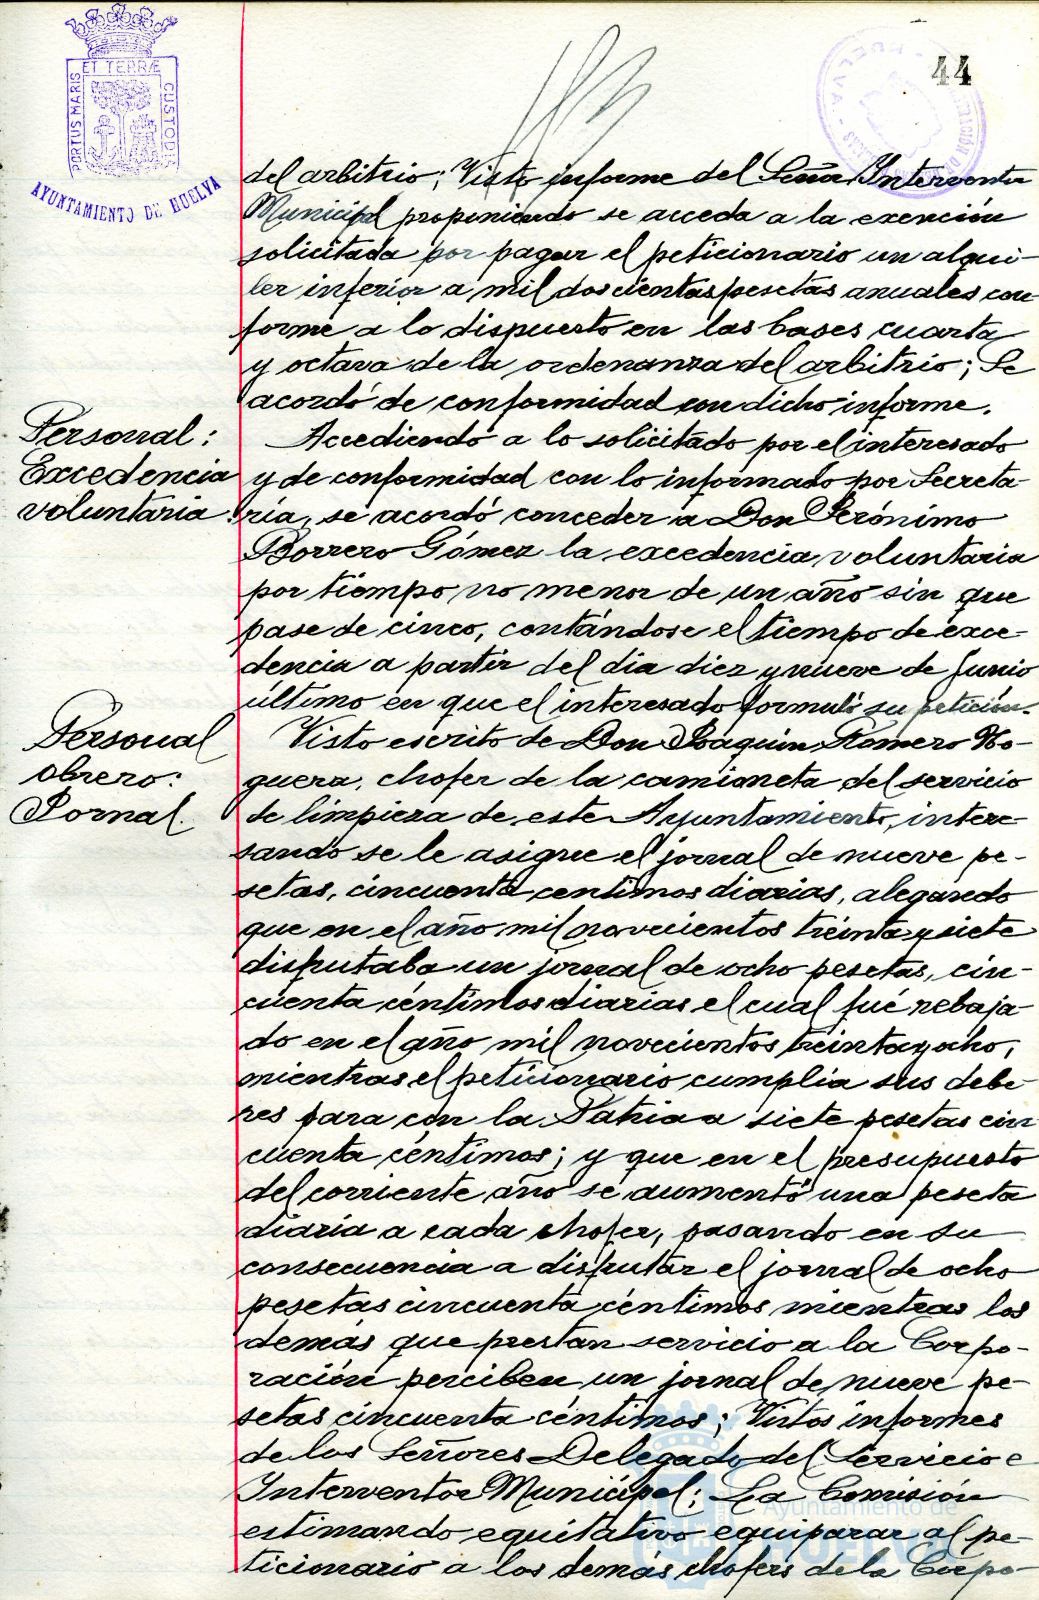 44
PORTUS MARIS ET TERRÆ CUSTODIA
AYUNTAMIENTO DE HUELVA
del arbitrio; Visto informe del Señor Interventor
Municipal proponiendo se acceda a la exención
solicitada por pagar el peticionario un alqui-
ler inferior a mil doscientas pesetas anuales con-
forme a lo dispuesto en las bases cuarta
y octava de la ordenanza del arbitrio; Se
acordó de conformidad con dicho informe.
Personal:
Excedencia
voluntaria.
Accediendo a lo solicitado por el interesado
y de conformidad con lo informado por Secreta-
ría, se acordó conceder a Don Jerónimo
Borrero Gómez la excedencia voluntaria
por tiempo no menor de un año sin que
pase de cinco, contándose el tiempo de exce-
dencia a partir del dia diez y nueve de Junio
último en que el interesado formuló su petición.
Personal
obrero:
Jornal.
Visto escrito de Don Joaquin Romero No-
guera, chofer de la camioneta del servicio
de limpieza de este Ayuntamiento, intere-
sando se le asigne el jornal de nueve pe-
setas, cincuenta centimos diarias, alegando
que en el año mil novecientos treinta y siete
disfrutaba un jornal de ocho pesetas, cin-
cuenta céntimos diarias el cual fué rebaja-
do en el año mil novecientos treinta y ocho,
mientras el peticionario cumplia sus debe-
res para con la Patria a siete pesetas cin
cuenta céntimos; y que en el presupuesto
del corriente año se aumentó una peseta
diaria a cada chofer, pasando en su
consecuencia a disfrutar el jornal de ocho
pesetas cincuenta céntimos mientras los
demás que prestan servicio a la Corpo-
ración perciben un jornal de nueve pe-
setas cincuenta céntimos; Vistos informes
de los Señores Delegado del Servicio e
Interventor Municipal; La Comisión
estimando equitativo equiparar al pe-
ticionario a los demás chofers de la Corpo-
Ayuntamiento de
HUELVA